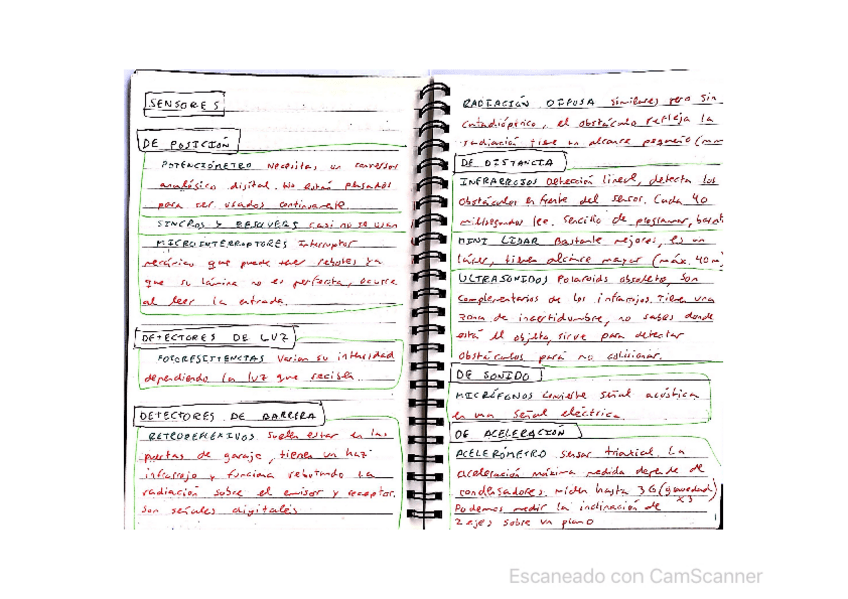 SENSORES
DE POSICIÓN
POTENCIÓMETRO Necesitas un conversor
analógico digital. No están pensados
para ser usados continuamente.
SINCROS Y RESOLVERS casi no se usan
MICROINTERRUPTORES Interruptor
mecánico que puede tener rebotes ya
que su lámina no es perfecta, ocurre
al leer la entrada.
DETECTORES DE LUZ
FOTORESISTENCIAS Varian su intensidad
dependiendo la luz que reciben
DETECTORES DE BARRERA
RETROREFLEXIVOS Suelen estar en las
puertas de garaje, tienen un haz
infrarrojo y funciona rebotando la
radiación sobre el emisor y receptor.
son señales digitales
RADIACIÓN DIFUSA Similares pero sin
catadióptrico, el obstáculo refleja la
radiación tiene un alcance pequeño (mm
DE DISTANCIA
INFRARROJOS Detección lineal, detecta los
obstáculos en frente del sensor. Cada 40
milisegundos lee. Sencillo de programar, barat
MINI LIDAR Bastante mejores, es un
láser, tienen alcance mayor (máx. 40m)
ULTRASONIDOS Polaroids obsoleto, son
complementarios de los infrarrojos. Tiene una
zona de incertidumbre, no sabes donde
está el objeto, sirve para detectar
obstáculos para no colisionar.
DE SONIDO
MICRÓFONOS Convierte señal acústica
en una señal eléctrica.
DE ACELERACIÓN
ACELERÓMETRO sensor triaxial. La
aceleración máxima medida depende de
condensadores. miden hasta 3G (gravedad)
x3
Podemos medir la inclinación de
2 ejes sobre un plano
Escaneado con CamScanner